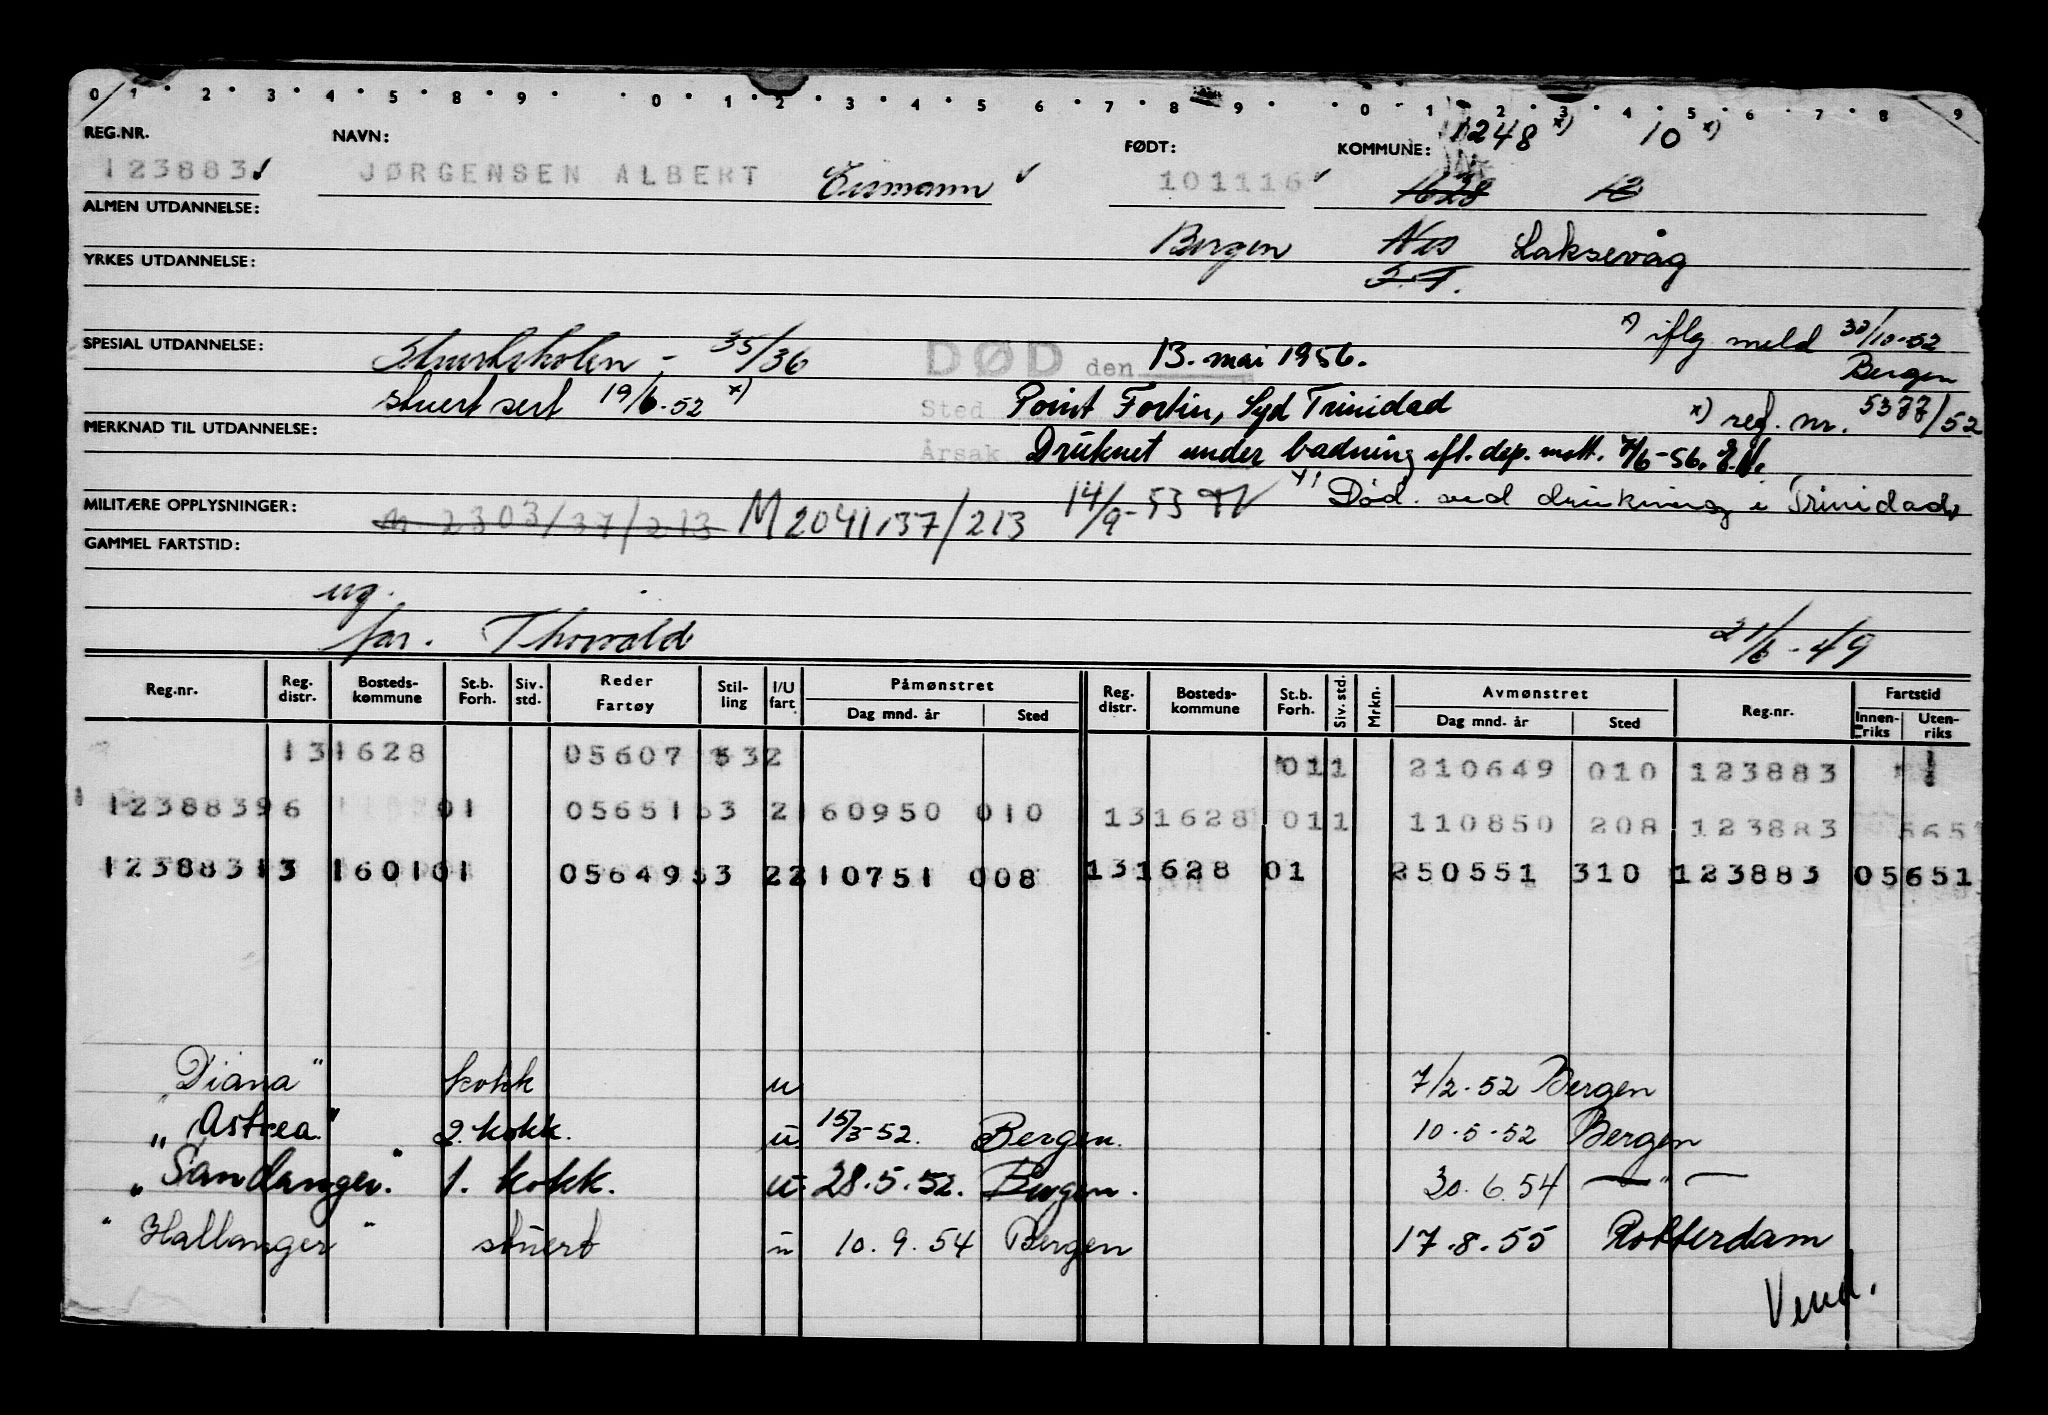 0 1 2 3 4 5 8 9 0 1 2 3 4 5 6 7 8 9 0 1 2 3 4 5 6 7 8 9
REG.NR. NAVN: FØDT: KOMMUNE: 1248 x) 10 x)
123883 JØRGENSEN ALBERT 101116 1628 12
ALMEN UTDANNELSE:
Bergen Nes Laksevåg
YRKES UTDANNELSE: S.T.
SPESIAL UTDANNELSE: Stuertskolen - 35/36 DØD den 13. mai 1956. x) iflg meld 30/10-52 Bergen
stuert sert 19/6.52 x) Sted Point Fortin, Syd Trinidad x) reg. nr. 5377/52
MERKNAD TIL UTDANNELSE: Årsak Druknet under badning efl. dep. mott. 7/6-56.
MILITÆRE OPPLYSNINGER: M 2303/37/213 M 2041/37/213 14/9-53 Død ved drukning i Trinidad
GAMMEL FARTSTID:
ug.
far. Thorvald 21/6-49
Reg.nr. Reg. distr. Bosteds- kommune St.b. Forh. Siv. std. Reder Fartøy Stil- ling I/U fart Påmønstret Dag mnd. år Sted Reg. distr. Bosteds- kommune St.b. Forh. Siv. std. Mrkn. Avmønstret Dag mnd. år Sted Reg.nr. Fartstid Innen- riks Uten- riks
131628 05607 532 011 210649 010 123883
123883 96 01 05651 53 2 160950 010 131628 011 110850 208 123883 565
123883 13 1601 01 05649 53 2 210751 008 131628 01 250551 310 123883 05651
"Diana" kokk u 7/2.52 Bergen
"Astrea" 2. kokk. u 15/3-52. Bergen. 10.5.52 Bergen
"Sandanger." 1. kokk. u 28.5.52. Bergen. 30.6.54 — " —
"Hallanger" stuert u 10.9.54 Bergen 17.8.55 Rotterdam
Vend.